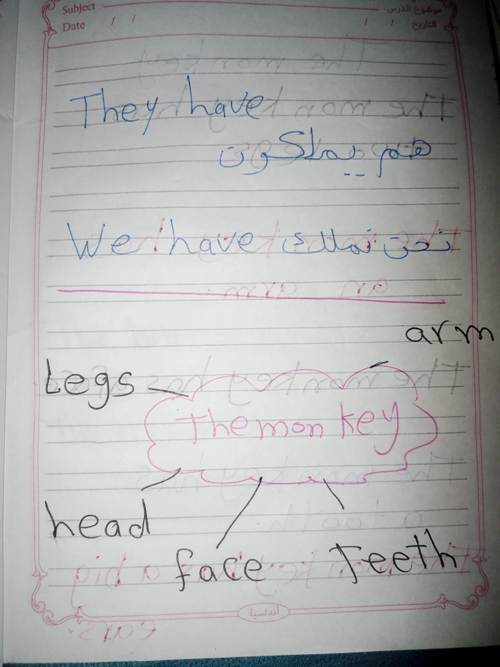 Subject موضوع الدرس
Date / / التاريخ / /
They have
هم يملكون
We have نحن نملك
arm
Legs
The monkey
head
face Teeth